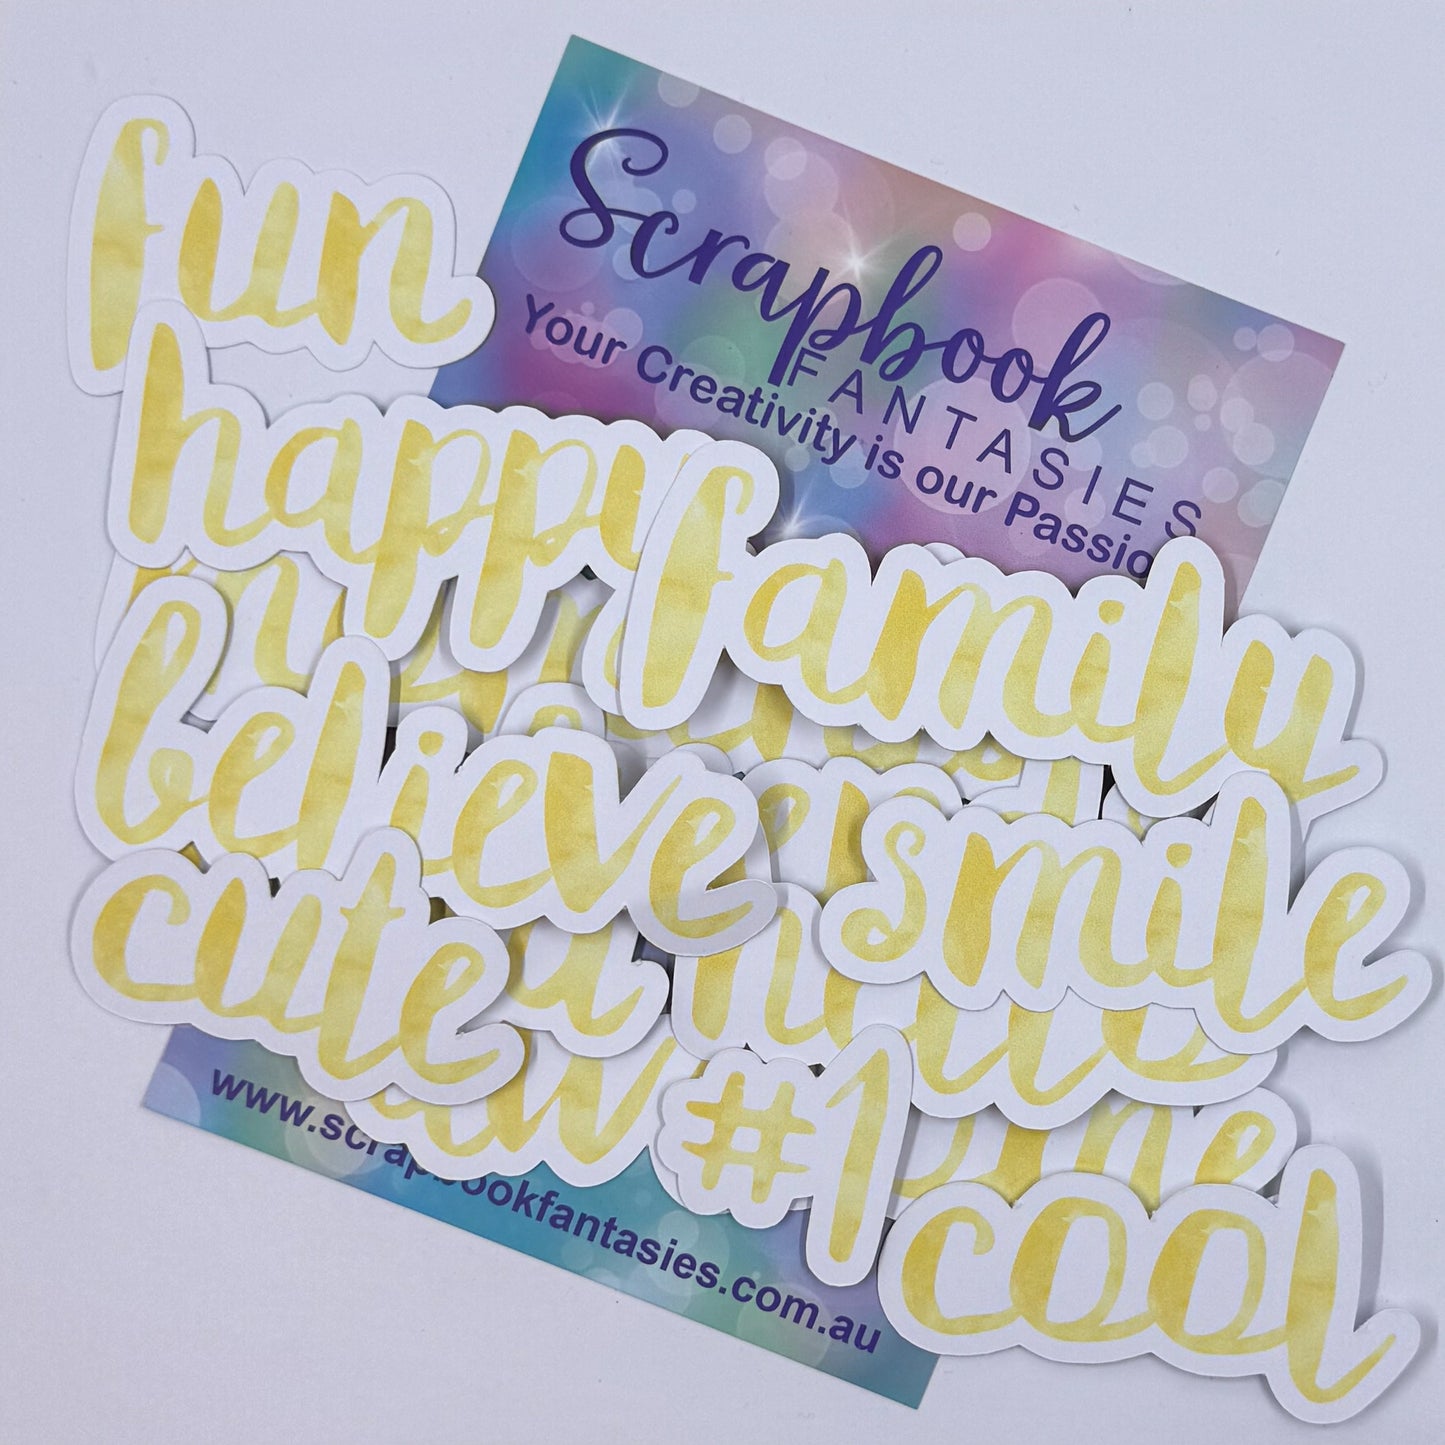 Scrapbook
FANTASIES
Your Creativity is our Passio
fun
happy
family
believe
smile
cute
#1
cool
www.scrapbookfantasies.com.au